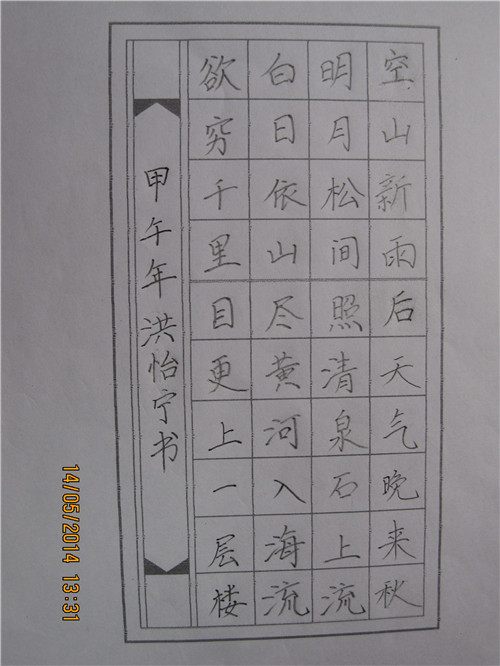 空山新雨后天气晚来秋
明月松间照清泉石上流
白日依山尽黄河入海流
欲穷千里目更上一层楼
甲午年洪怡宁书
14/05/2014 13:31